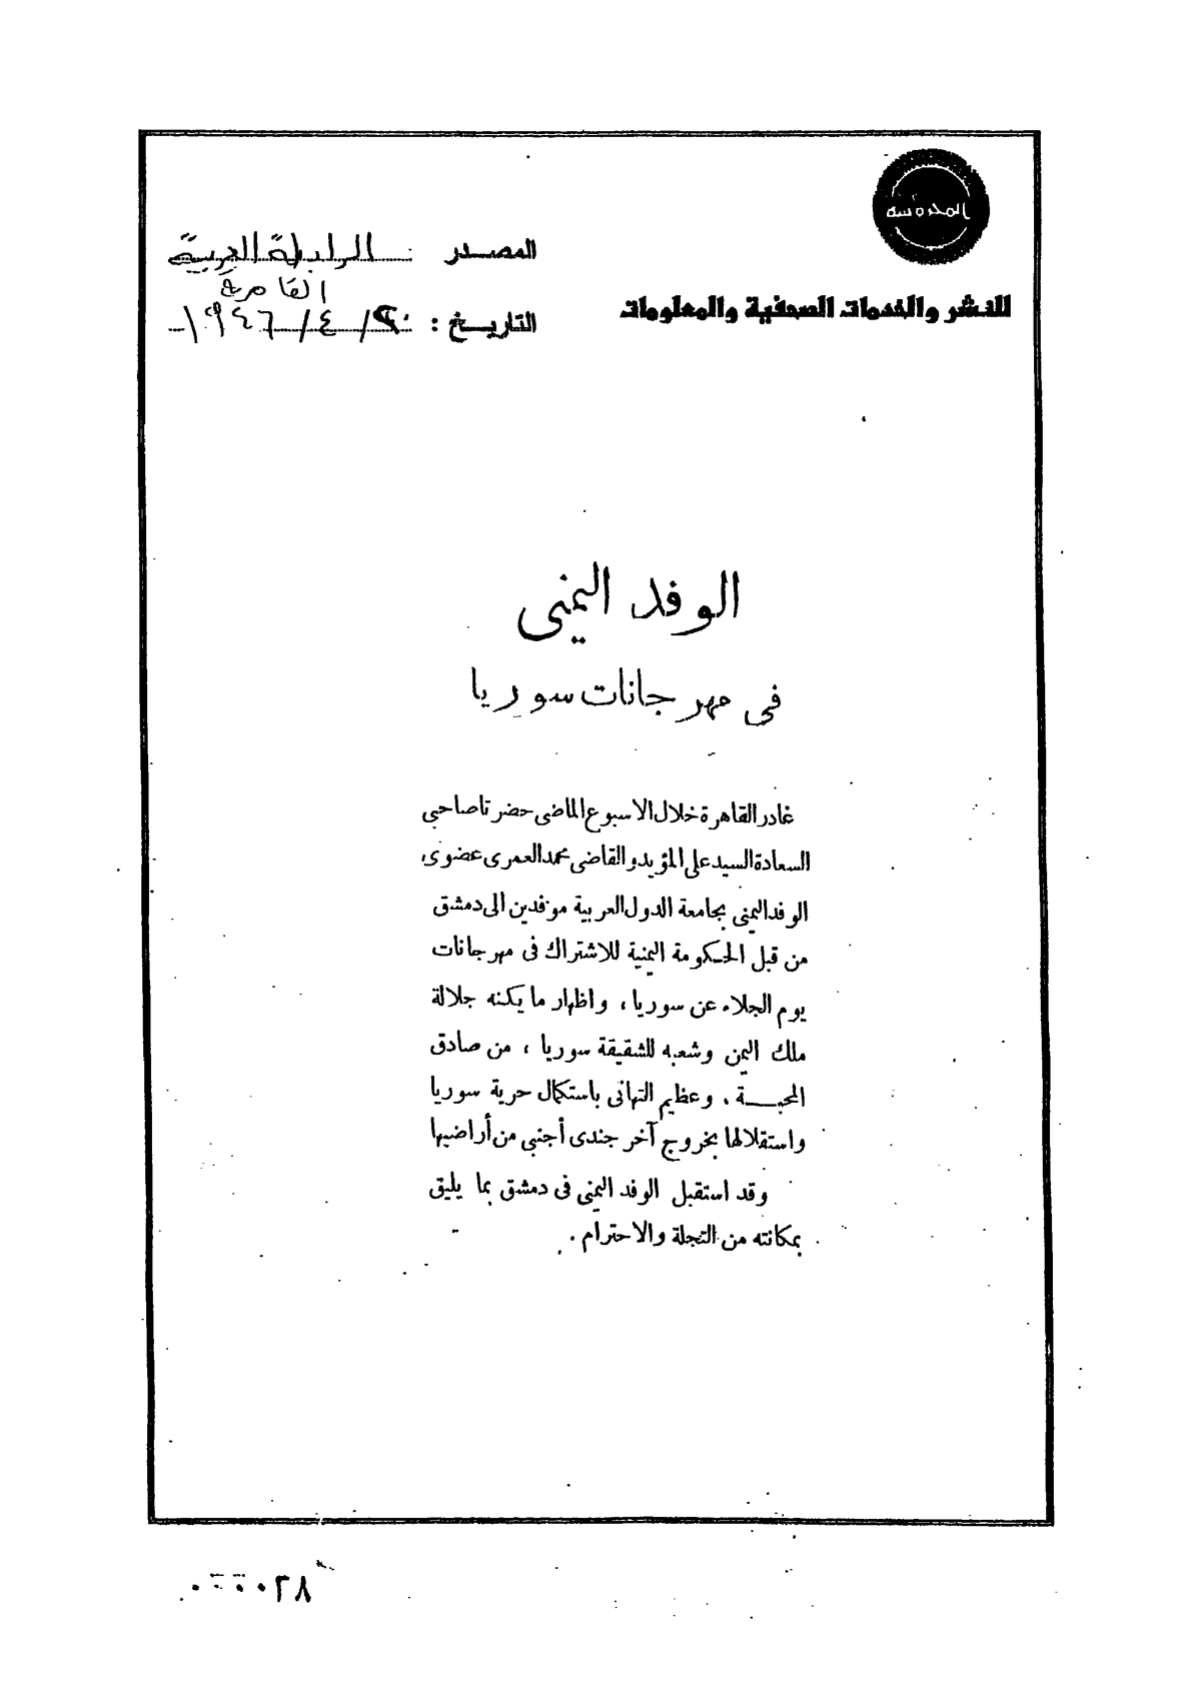 المحروسة
للنشر والخدمات الصحفية والمعلومات
المصدر : الرابطة العربية
القاهرة
التاريخ : ٢٠/٤/١٩٤٦
الوفد اليمنى
فى مهرجانات سوريا
غادر القاهرة خلال الاسبوع الماضى حضرتا صاحبى
السعادة السيد على المؤيد والقاضى محمد العمرى عضوى
الوفد اليمنى بجامعة الدول العربية موفدين الى دمشق
من قبل الحكومة اليمنية للاشتراك فى مهرجانات
يوم الجلاء عن سوريا ، واظهار ما يكنه جلالة
ملك اليمن وشعبه للشقيقة سوريا ، من صادق
المحبــــة ، وعظيم التهانى باستكمال حرية سوريا
واستقلالها بخروج آخر جندى أجنبى من أراضيها
وقد استقبل الوفد اليمنى فى دمشق بما يليق
بمكانته من التجلة والاحترام .